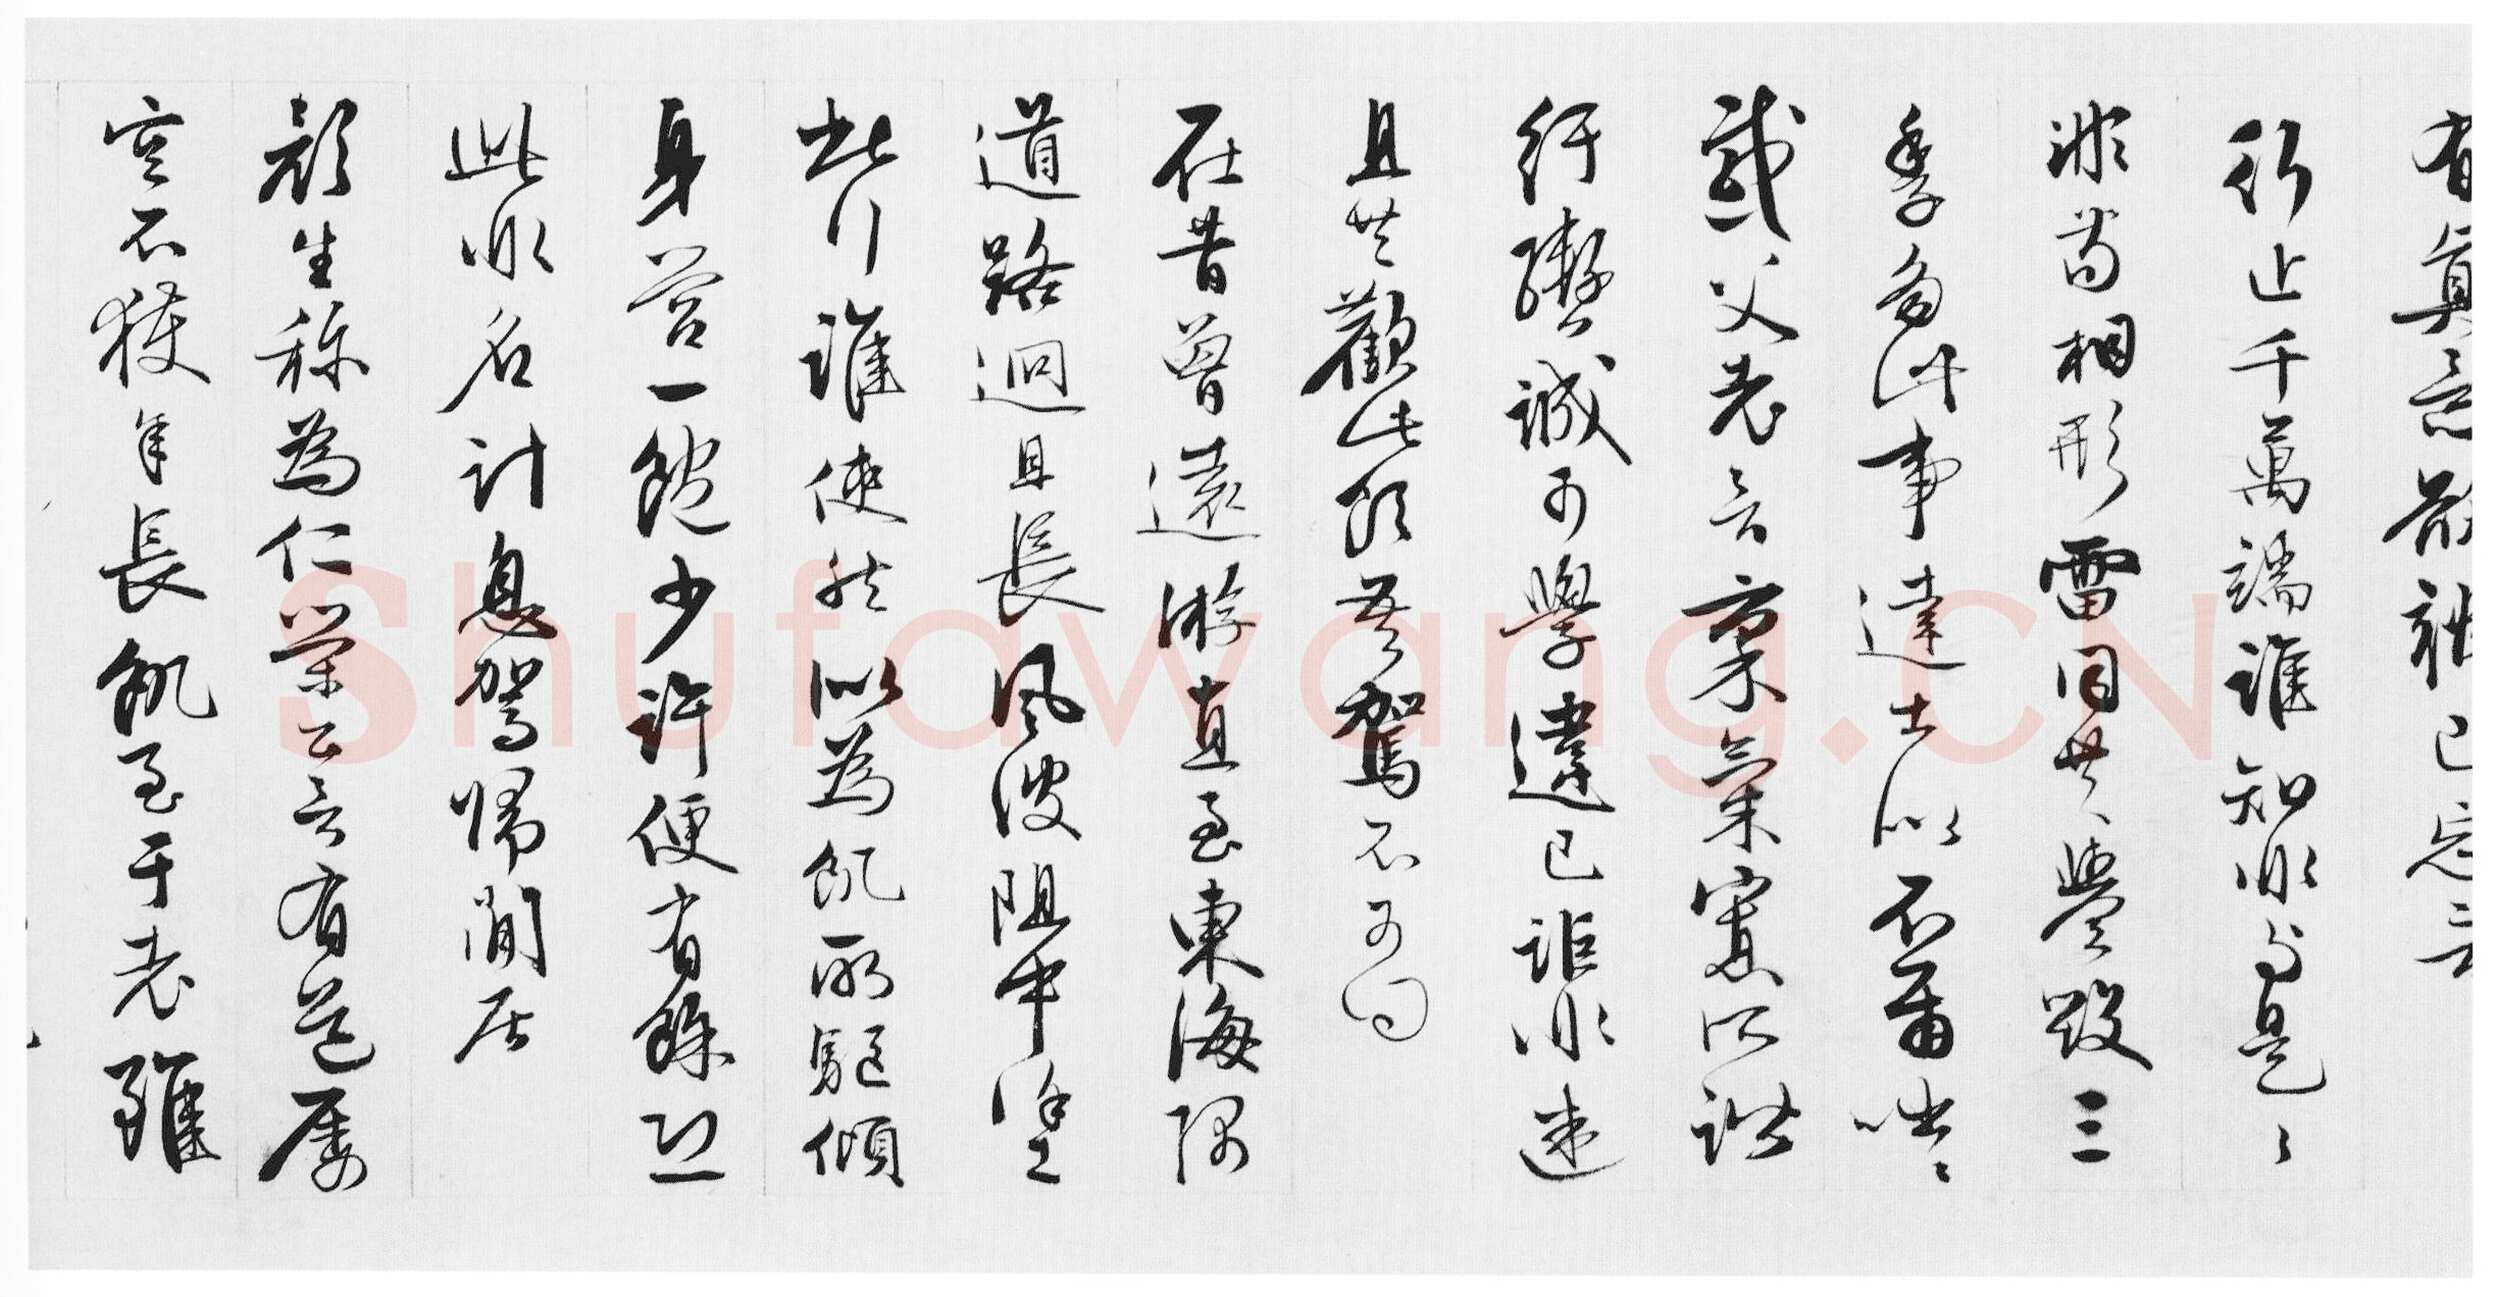 有真意欲辯已忘言
行止千萬端誰知非与是〻
非苟相形雷同共譽毀三
季多此事達士似不爾咄〻
感父老言稟氣寡所諧
紆轡誠可學違己詎非迷
且共歡此飲吾駕不可回
在昔曾遠游直至東海隅
道路迥且長風波阻中塗
此行誰使然似為飢所驅傾
身營一飽少許便有餘恐
此非名計息駕歸閒居
顏生稱為仁榮公言有道屢
空不獲年長飢至于老雖
Shufawang.CN